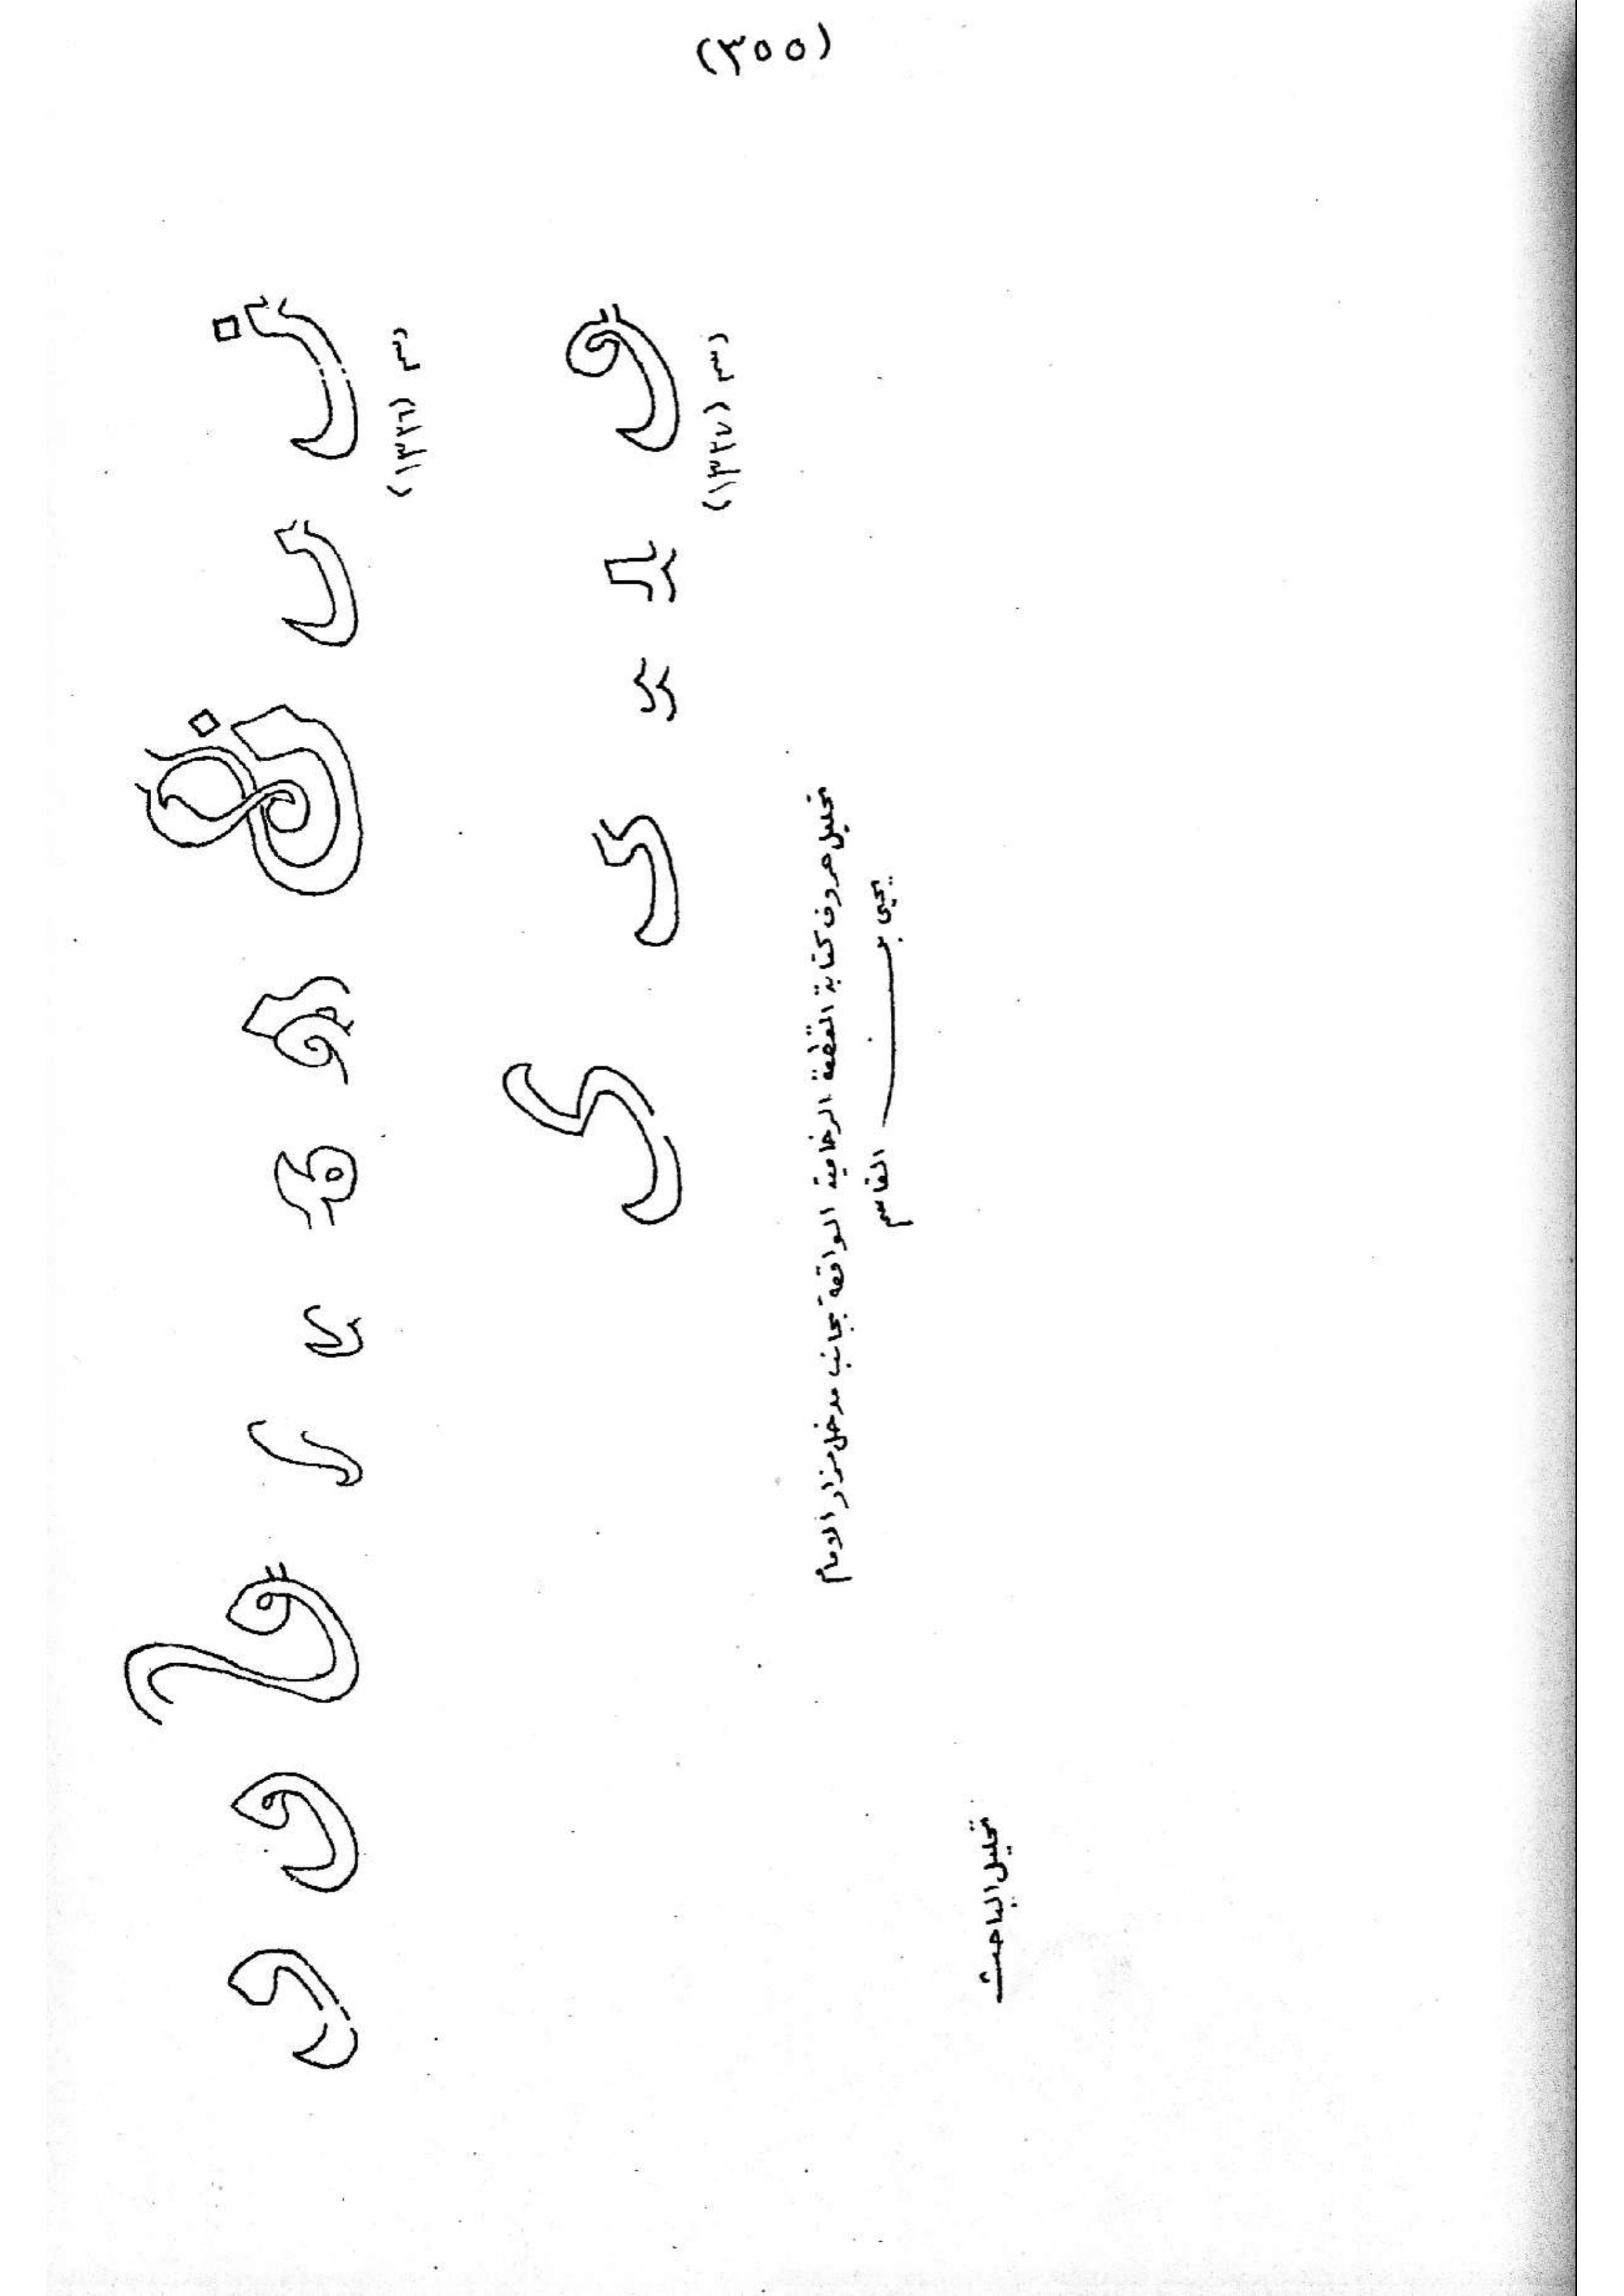 (٣٥٥)
رسم (١٣٢٦)
رسم (١٣٢٧)
تحليل حروف كتابة القطعة الرخامية الواقعة بجانب مدخل مزار الامام
يحيى بن القاسم
تحليل الباحث